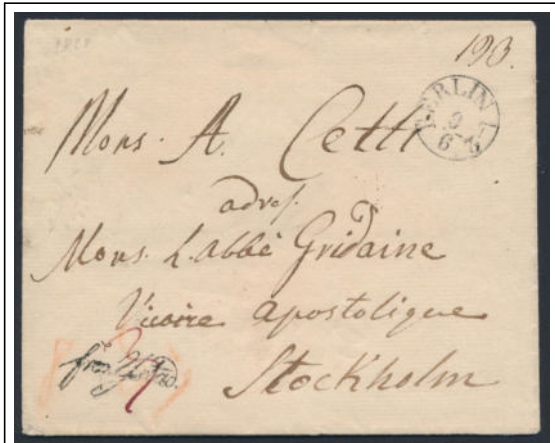 193.
BERLIN
9
6
Mons. A. Cetti
adres.
Mons. L'abbé Gridaine
Vicaire apostolique
Stockholm